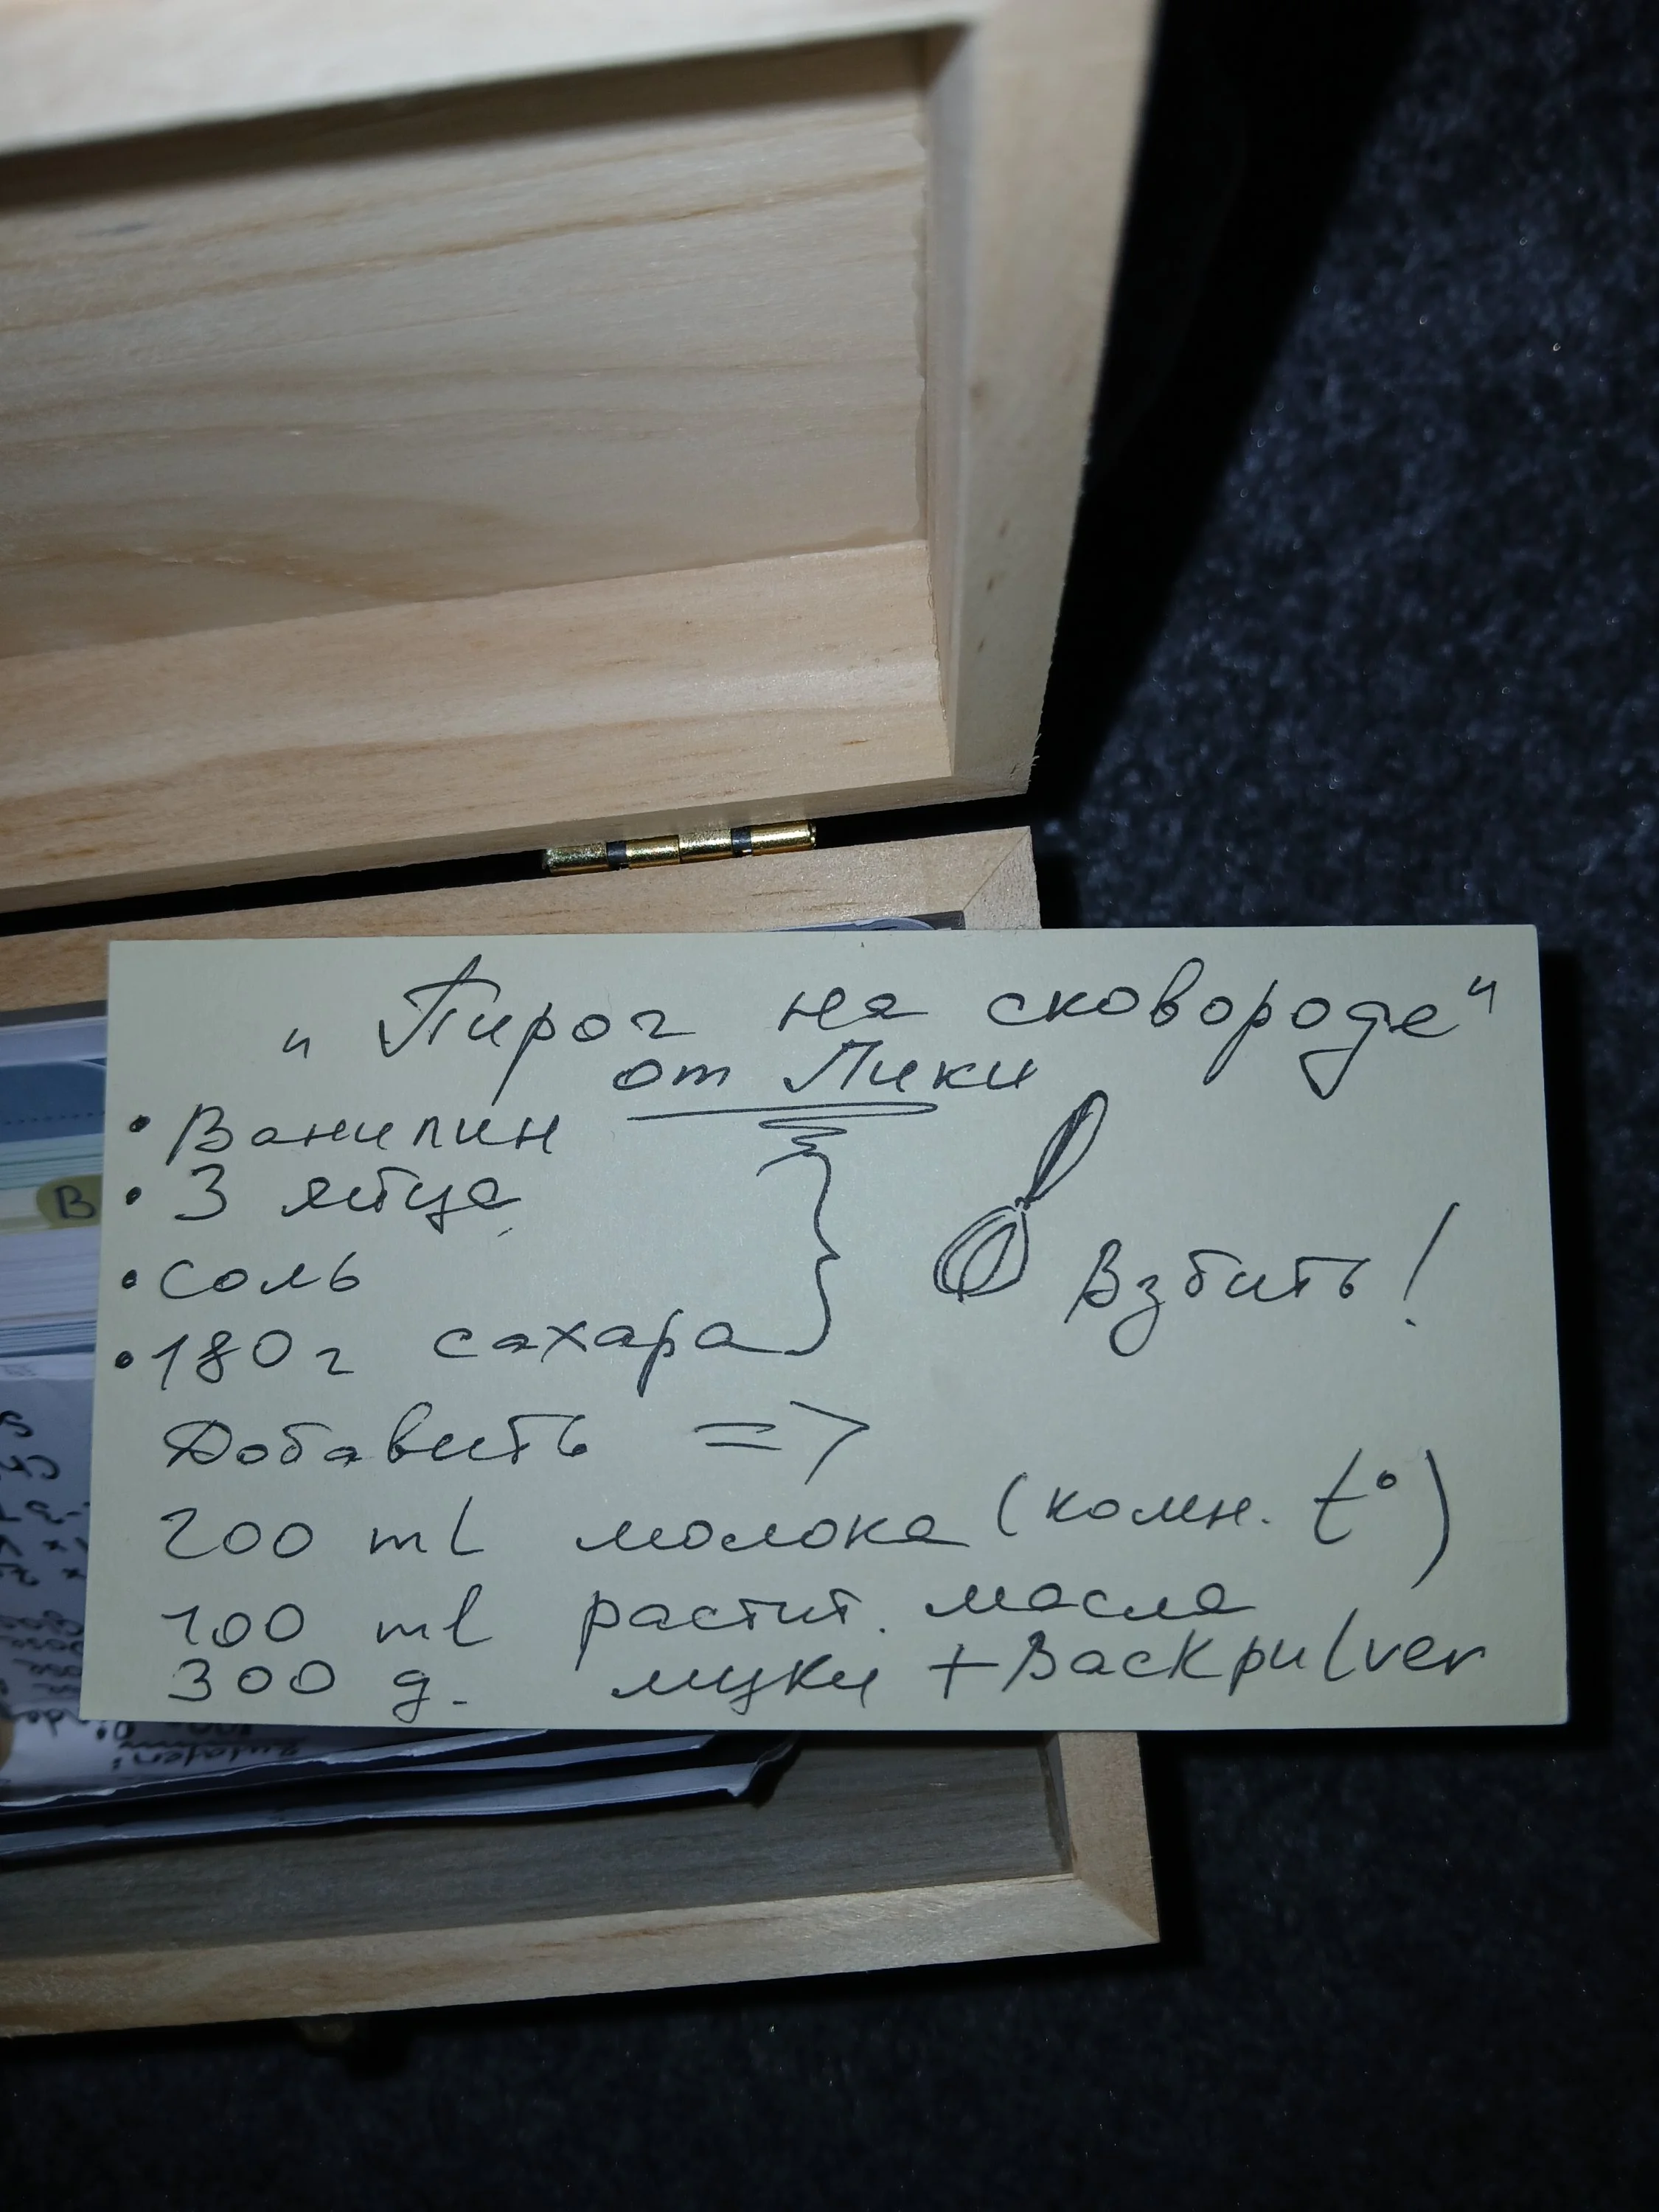 „Пирог на сковороде“
от Лики
• Ванилин
• 3 яйца
• соль
• 180 г сахара
Взбить!
Добавить =>
200 ml молока (комн. t°)
100 ml растит. масла
300 g. муки + Backpulver
B
Zutaten: